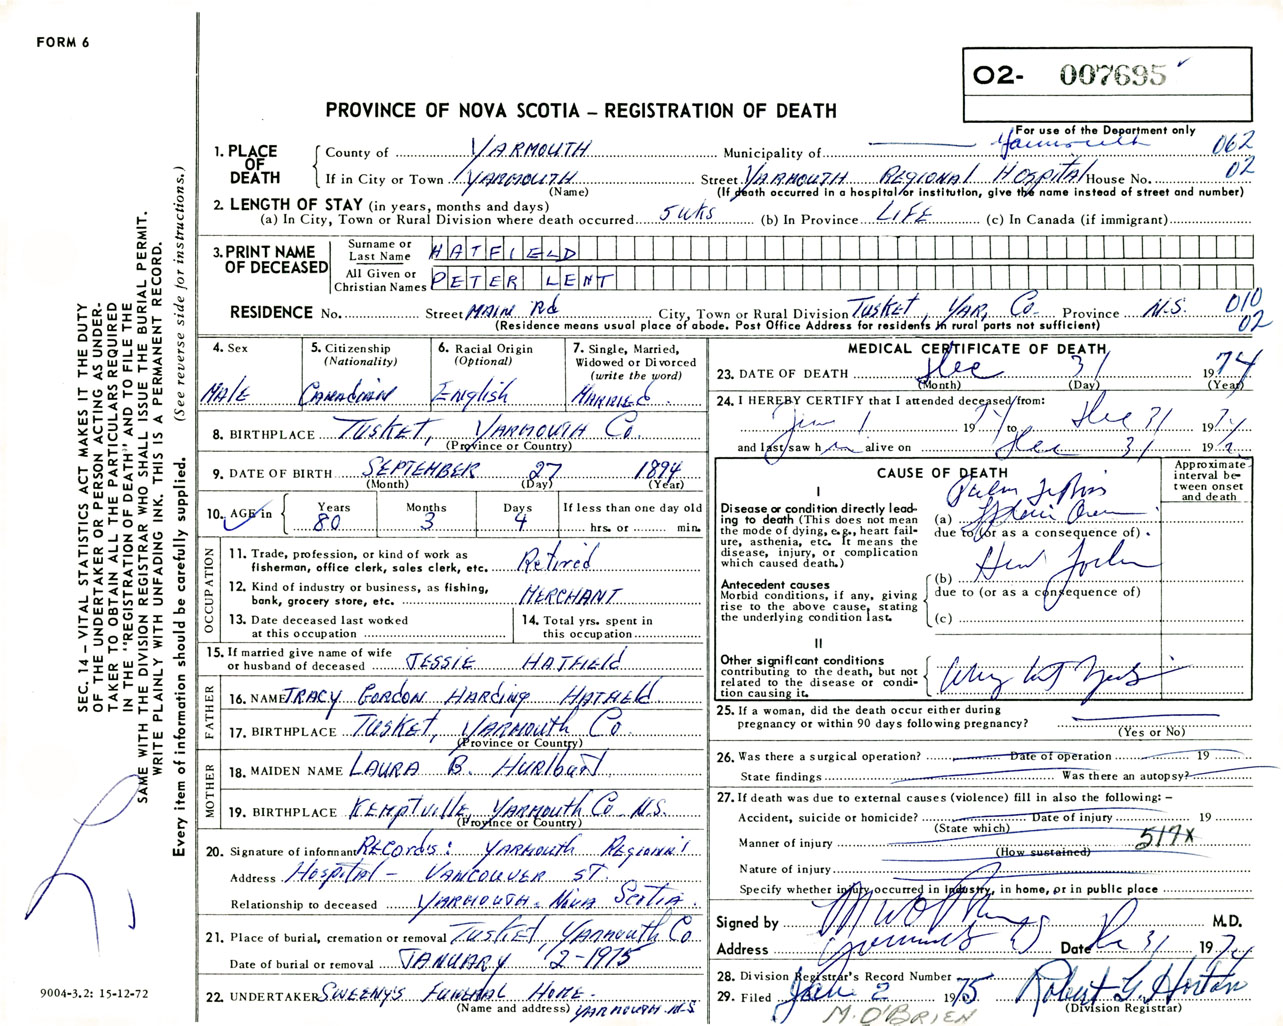 FORM 6
02- 007695
PROVINCE OF NOVA SCOTIA – REGISTRATION OF DEATH
For use of the Department only
1. PLACE OF DEATH
County of YARMOUTH Municipality of Yarmouth 062
If in City or Town YARMOUTH Street YARMOUTH REGIONAL HOSPITAL House No. 02
(Name) (If death occurred in a hospital or institution, give the name instead of street and number)
2. LENGTH OF STAY (in years, months and days)
(a) In City, Town or Rural Division where death occurred 5 WKS (b) In Province LIFE (c) In Canada (if immigrant)
3. PRINT NAME OF DECEASED
Surname or Last Name HATFIELD
All Given or Christian Names PETER LENT
RESIDENCE No. Street MAIN Rd City, Town or Rural Division TUSKET, YAR, Co. Province N.S. 010
(Residence means usual place of abode. Post Office Address for residents in rural parts not sufficient) 02
4. Sex MALE
5. Citizenship (Nationality) CANADIAN
6. Racial Origin (Optional) English
7. Single, Married, Widowed or Divorced (write the word) MARRIED
8. BIRTHPLACE TUSKET, YARMOUTH Co.
(Province or Country)
9. DATE OF BIRTH SEPTEMBER 27 1894
(Month) (Day) (Year)
10. AGE in Years 80 Months 3 Days 4 If less than one day old hrs. or min.
OCCUPATION
11. Trade, profession, or kind of work as fisherman, office clerk, sales clerk, etc. Retired
12. Kind of industry or business, as fishing, bank, grocery store, etc. MERCHANT
13. Date deceased last worked at this occupation
14. Total yrs. spent in this occupation
15. If married give name of wife or husband of deceased JESSIE HATFIELD
FATHER
16. NAME TRACY GORDON HARDING HATFIELD
17. BIRTHPLACE TUSKET, YARMOUTH Co.
(Province or Country)
MOTHER
18. MAIDEN NAME LAURA B. HURlbuRT
19. BIRTHPLACE KEMPTVILLE, YARMOUTH Co. N.S.
(Province or Country)
20. Signature of informant RECORDS: YARMOUTH REGIONAL
Address HOSPITAL - VANCOUVER ST.
Relationship to deceased YARMOUTH. NOVA SCOTIA.
21. Place of burial, cremation or removal TUSKET, YARMOUTH Co
Date of burial or removal JANUARY 2-1975
22. UNDERTAKER SWEENY'S FUNERAL HOME.
(Name and address) YARMOUTH. N.S
MEDICAL CERTIFICATE OF DEATH
23. DATE OF DEATH Dec 31 1974
(Month) (Day) (Year)
24. I HEREBY CERTIFY that I attended deceased from:
1 1974 to Dec 31 1974
and last saw him alive on Dec 31 19
CAUSE OF DEATH
Approximate interval between onset and death
I
Disease or condition directly leading to death (This does not mean the mode of dying, e.g., heart failure, asthenia, etc. It means the disease, injury, or complication which caused death.)
(a)
due to (or as a consequence of)
Antecedent causes
Morbid conditions, if any, giving rise to the above cause, stating the underlying condition last.
(b)
due to (or as a consequence of)
(c)
II
Other significant conditions contributing to the death, but not related to the disease or condition causing it.
25. If a woman, did the death occur either during pregnancy or within 90 days following pregnancy?
(Yes or No)
26. Was there a surgical operation? Date of operation 19
State findings Was there an autopsy?
27. If death was due to external causes (violence) fill in also the following: –
Accident, suicide or homicide? Date of injury 19
(State which)
Manner of injury 519X
(How sustained)
Nature of injury
Specify whether injury occurred in Industry, in home, or in public place
Signed by M.D.
Address Yarmouth Date Dec 31 1974
28. Division Registrar's Record Number
29. Filed Jan 2 1975 Robert G. Horton
(Division Registrar)
M. O'BRIEN
SEC. 14 – VITAL STATISTICS ACT MAKES IT THE DUTY
OF THE UNDERTAKER OR PERSON ACTING AS UNDER-
TAKER TO OBTAIN ALL THE PARTICULARS REQUIRED
IN THE "REGISTRATION OF DEATH" AND TO FILE THE
SAME WITH THE DIVISION REGISTRAR WHO SHALL ISSUE THE BURIAL PERMIT.
WRITE PLAINLY WITH UNFADING INK. THIS IS A PERMANENT RECORD.
Every item of information should be carefully supplied. (See reverse side for instructions.)
9004-3.2: 15-12-72